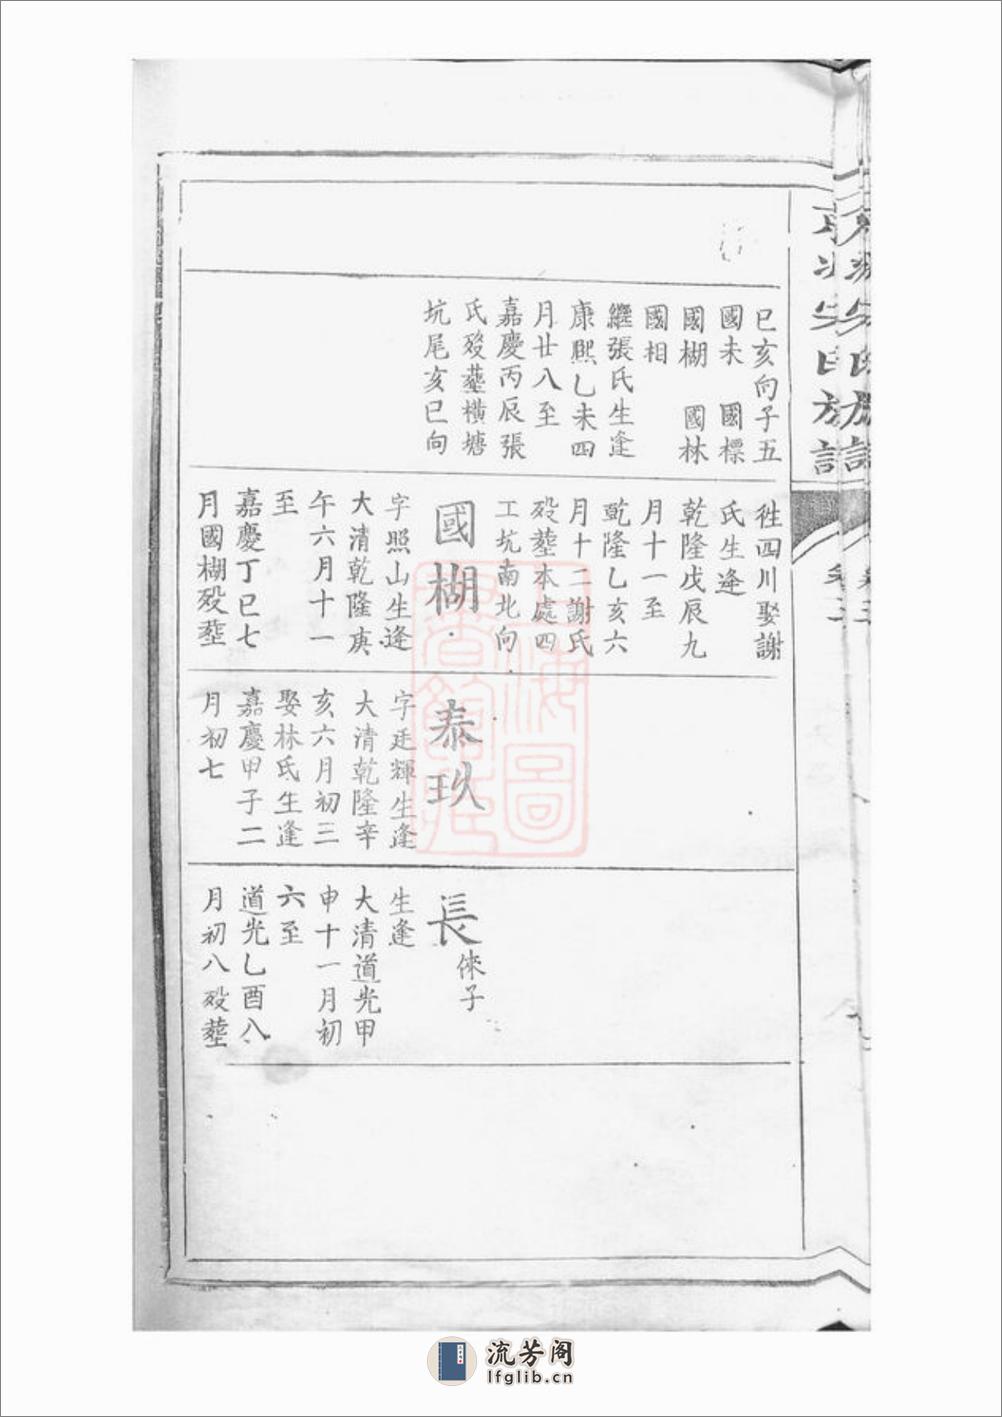 巳亥向子五
國未　國標
國楜　國林
國相
繼張氏生逢
康熙乙未四
月廿八至
嘉慶丙辰張
氏歿塟橫塘
坑尾亥巳向
徃四川娶謝
氏生逢
乾隆戊辰九
月十一至
乾隆乙亥六
月十二謝氏
歿塟本處四
工坑南北向
國楜
字照山生逢
大清乾隆庚
午六月十一
至
嘉慶丁巳七
月國楜歿塟
泰玖
字廷輝生逢
大清乾隆辛
亥六月初三
娶林氏生逢
嘉慶甲子二
月初七
長倈子
生逢
大清道光甲
申十一月初
六至
道光乙酉八
月初八歿塟
上海圖
書館藏
流芳阁
lfglib.cn